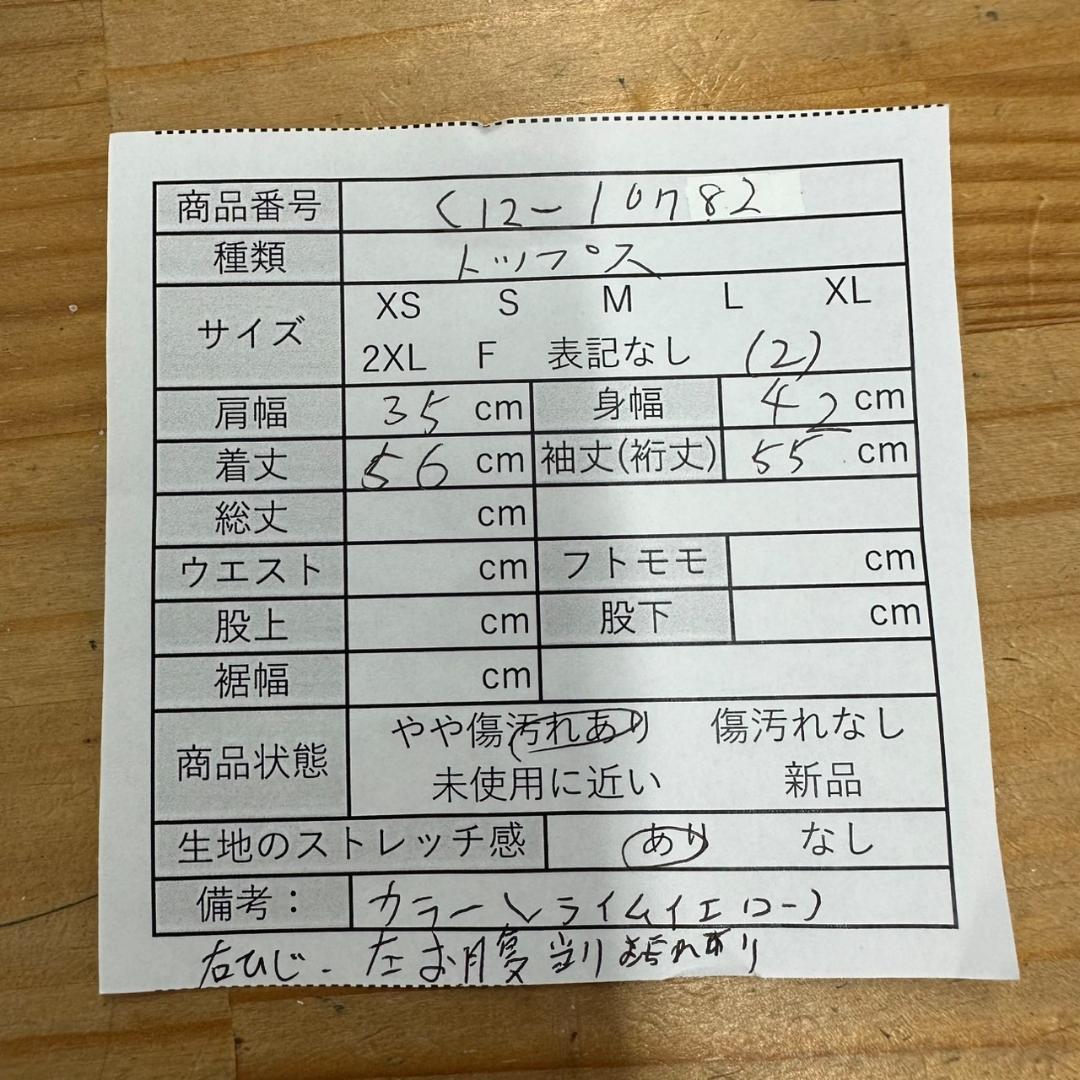 商品番号 C12-10782
種類 トップス
サイズ XS S M L XL
2XL F 表記なし (2)
肩幅 35 cm 身幅 42 cm
着丈 56 cm 袖丈(裄丈) 55 cm
総丈 cm
ウエスト cm フトモモ cm
股上 cm 股下 cm
裾幅 cm
商品状態 やや傷汚れあり 傷汚れなし
未使用に近い 新品
生地のストレッチ感 あり なし
備考： カラー(ライムイエロー)
右ひじ、左お腹当り汚れあり